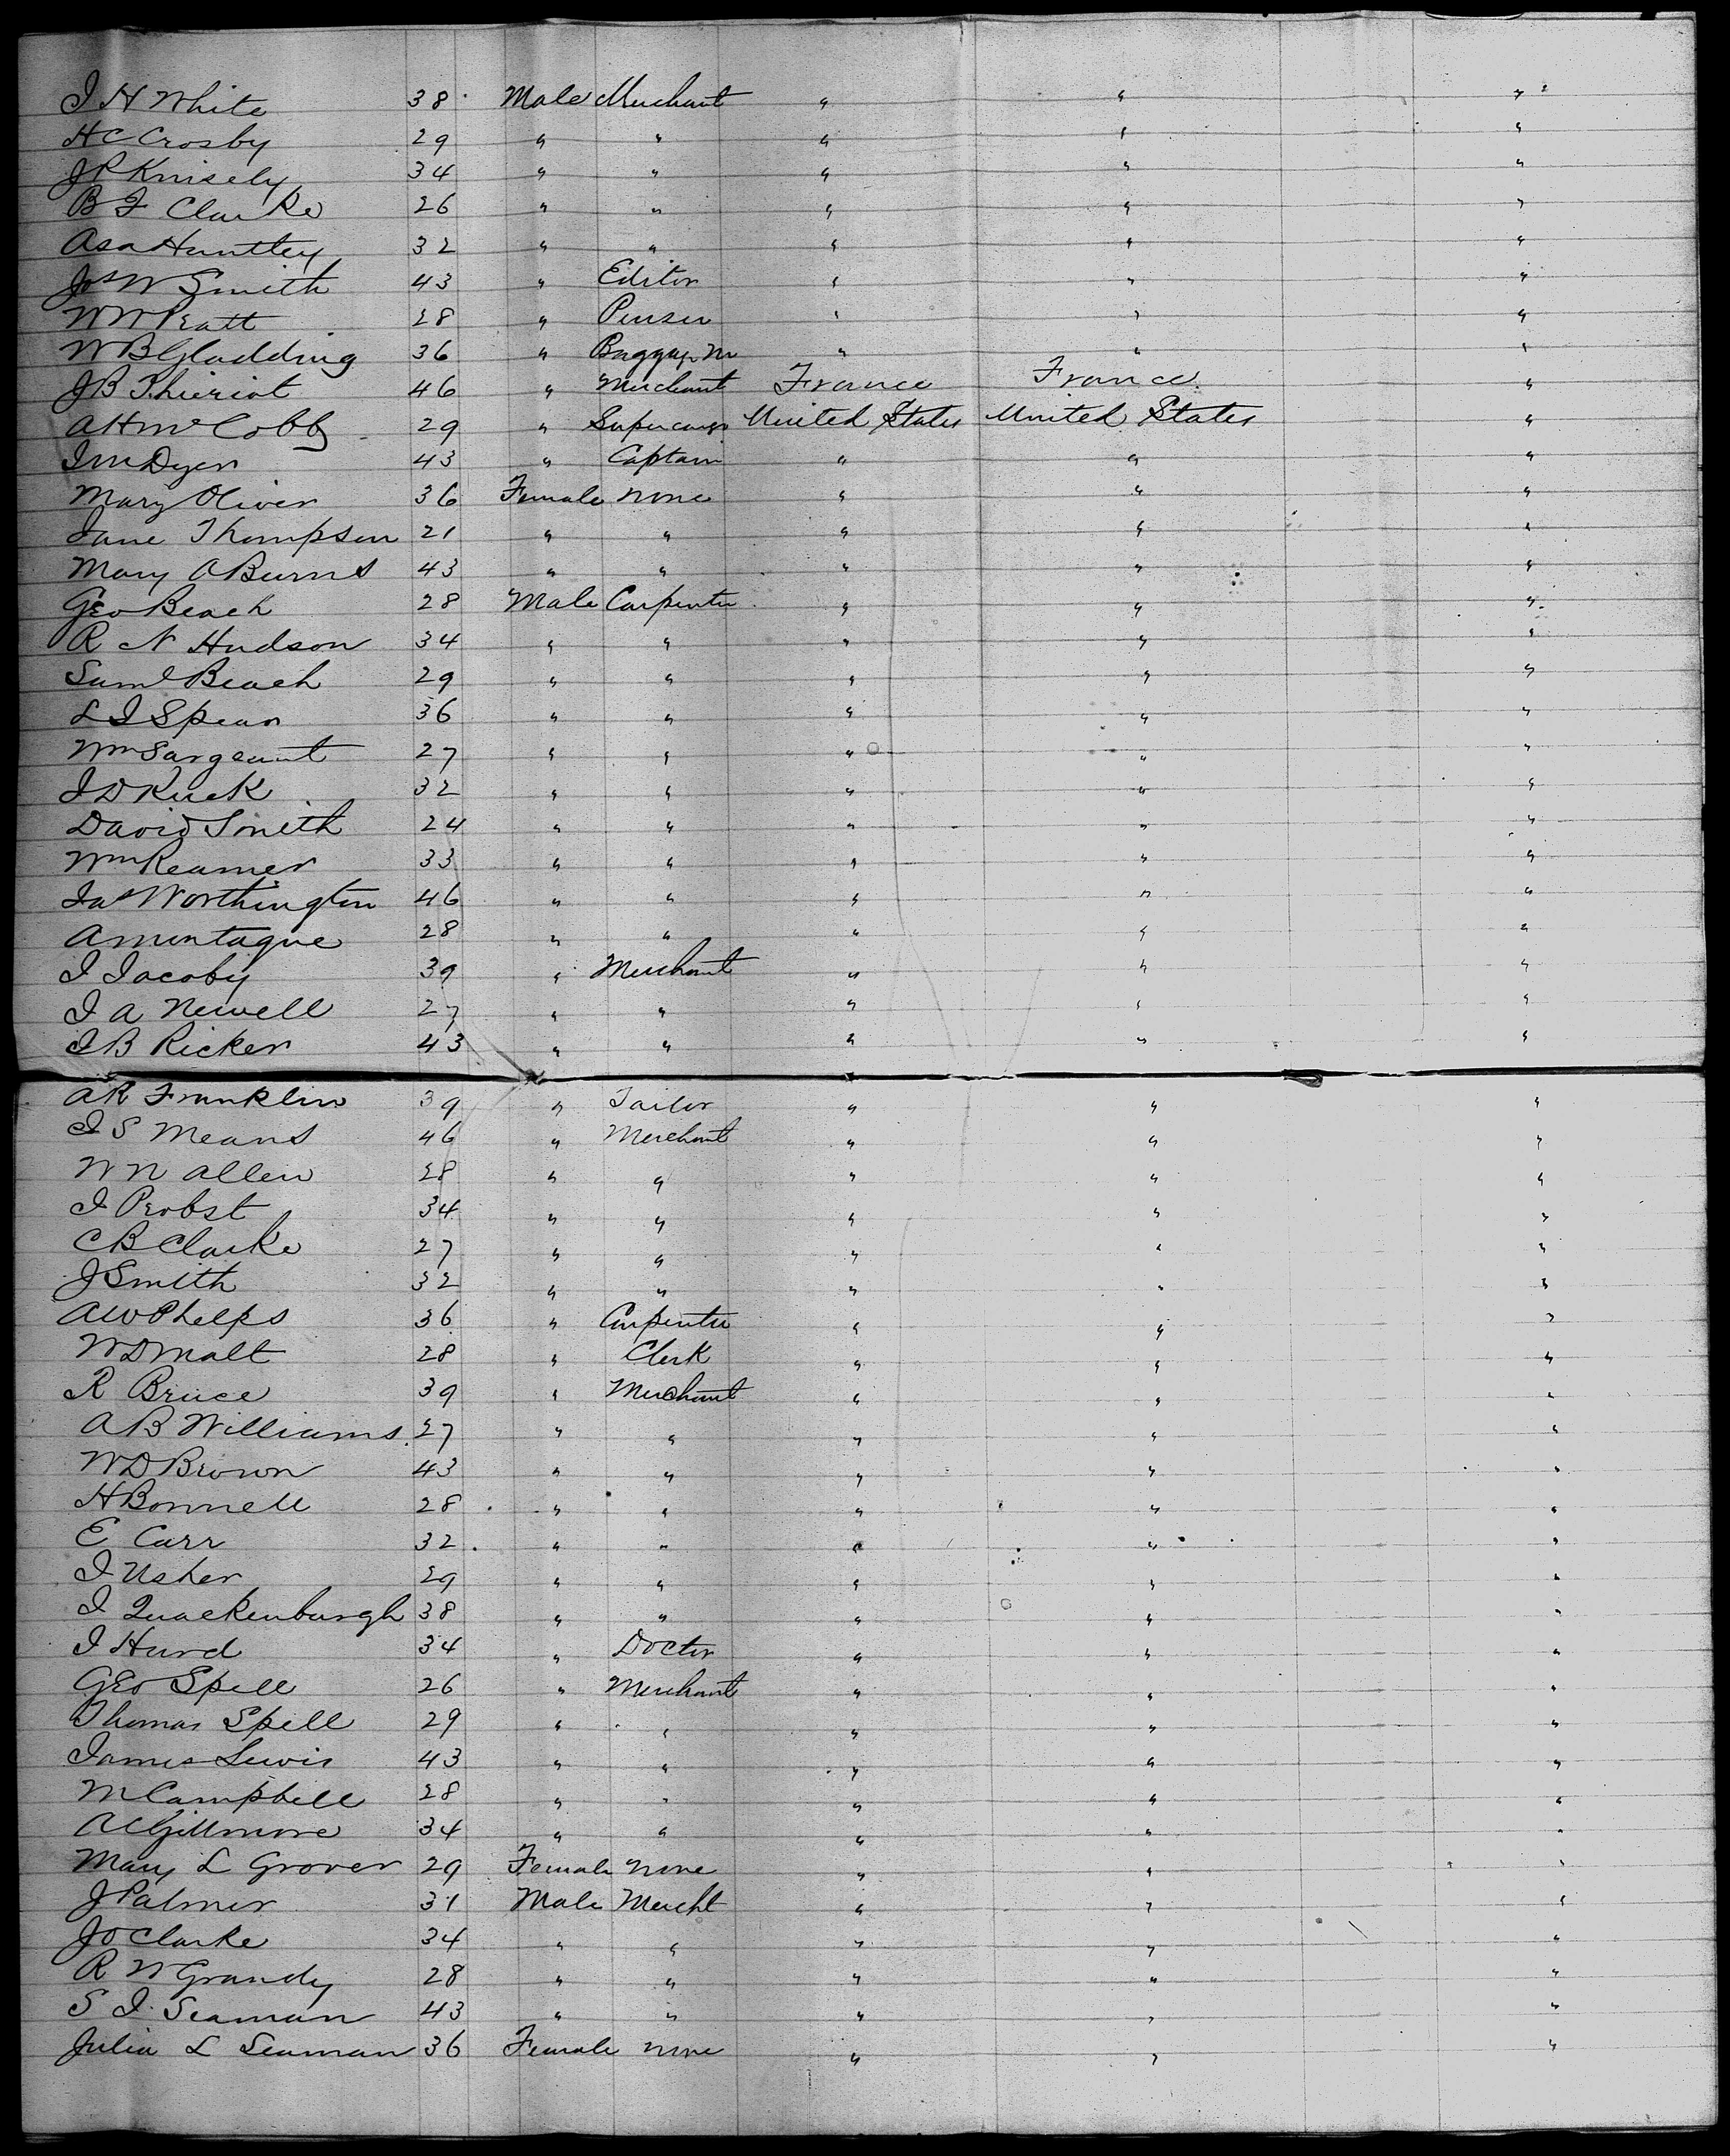 I H White 38 Male Merchant " " "
H C Crosby 29 " " " " "
J P Knisely 34 " " " " "
B F Clarke 26 " " " " "
Asa Huntley 32 " " " " "
Jos W Smith 43 " Editor " " "
W W Pratt 28 " Purser " " "
W B Gladding 36 " Baggage M " " "
J B Thieriot 46 " Merchant France France "
A H McCobb 29 " Supercargo United States United States "
I M Dyer 43 " Captain " " "
Mary Oliver 36 Female None " " "
Jane Thompson 21 " " " " "
Mary A Burns 43 " " " " "
Geo Beach 28 Male Carpenter " " "
R N Hudson 34 " " " " "
Saml Beach 29 " " " " "
L I Spear 36 " " " " "
Wm Sargeant 27 " " " " "
I D Ruck 32 " " " " "
David Smith 24 " " " " "
Wm Reamer 33 " " " " "
Jas Worthington 46 " " " " "
A Montague 28 " " " " "
I Jacoby 39 " Merchant " " "
I A Newell 27 " " " " "
I B Ricker 43 " " " " "
A R Franklin 39 " Tailor " " "
I S Means 46 " Merchant " " "
W N Allen 28 " " " " "
I Probst 34 " " " " "
C B Clarke 27 " " " " "
J Smith 32 " " " " "
A W Phelps 36 " Carpenter " " "
W D Malt 28 " Clerk " " "
R Bruce 39 " Merchant " " "
A B Williams 27 " " " " "
W D Brown 43 " " " " "
H Bonnell 28 " " " " "
E Carr 32 " " " " "
I Usher 29 " " " " "
I Quackenburgh 38 " " " " "
I Hurd 34 " Doctor " " "
Geo Spell 26 " Merchant " " "
Thomas Spell 29 " " " " "
James Lewis 43 " " " " "
M Campbell 28 " " " " "
A C Gillmore 34 " " " " "
Mary L Grover 29 Female None " " "
J Palmer 31 Male Mercht " " "
J O Clarke 34 " " " " "
R W Grandy 28 " " " " "
S I Seaman 43 " " " " "
Julia L Seaman 36 Female None " " "